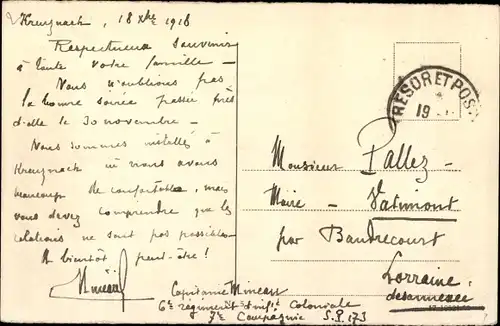 Kreuznach, 18 Xbre 1918
Respectueux souvenir
à toute votre famille —
Nous n'oublions pas
la bonne soirée passée près
d'elle le 30 novembre —
Nous sommes installés à
Kreuznach où nous avons
beaucoup de confortable, mais
vous devez comprendre que les
relations ne sont pas possibles —
A bientôt peut-être!
Capitaine
6e régiment d'infie Coloniale
7e Compagnie S.P. 173
TRESOR ET POSTES
19
Monsieur Pallez —
Maire — Vatimont
par Baudrecourt
Lorraine
désannexée